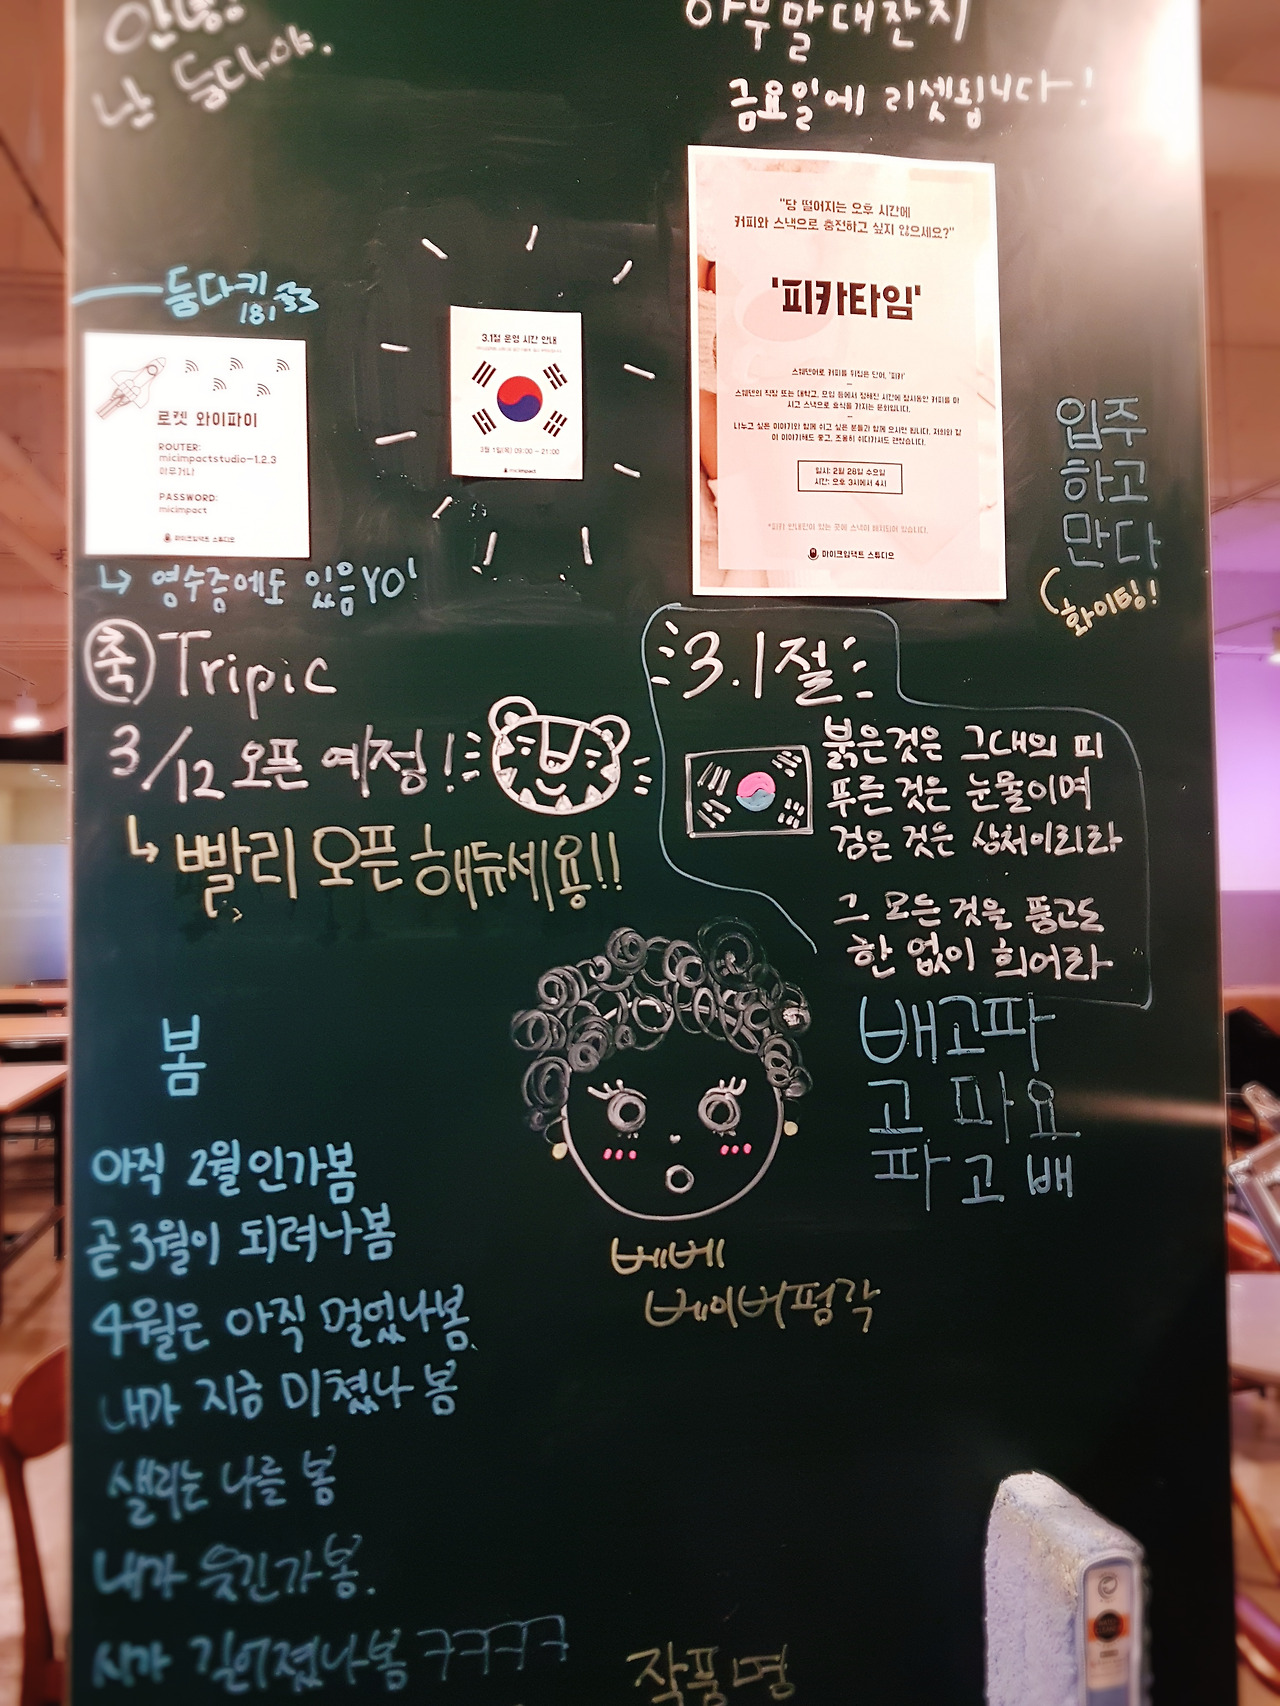 안녕!
난 둠다야.
아무말대잔치
금요일에 리셋됩니다!
둠다키
181
로켓 와이파이
ROUTER:
micimpactstudio-1,2,3
아무거나
PASSWORD:
micimpact
마이크임팩트 스튜디오
↳ 영수증에도 있음YO!
3.1절 운영 시간 안내
3월 1일(목) 09:00 ~ 21:00
micimpact
"당 떨어지는 오후 시간에
커피와 스낵으로 충전하고 싶지 않으세요?"
'피카타임'
스웨덴어로 커피를 뒤집은 단어, '피카'
스웨덴의 직장 또는 대학교, 모임 등에서 정해진 시간에 잠시동안 커피를 마
시고 스낵으로 휴식을 가지는 문화입니다.
나누고 싶은 이야기와 함께 쉬고 싶은 분들과 함께 오시면 됩니다. 저희와 같
이 이야기해도 좋고, 조용히 쉬다가셔도 괜찮습니다.
일시: 2월 28일 수요일
시간: 오후 3시에서 4시
*피카 안내판이 있는 곳에 스낵이 배치되어 있습니다.
마이크임팩트 스튜디오
입주
하고
만다
화이팅!
축 Tripic
3/12 오픈 예정!
↳ 빨리 오픈해듀세용!!
3.1절
붉은것은 그대의 피
푸른것은 눈물이며
검은 것은 상처이리라
그 모든것을 품고도
한 없이 희어라
배고파
고 파요
파고배
베베
베이버펑각
봄
아직 2월인가봄
곧 3월이 되려나봄
4월은 아직 멀었나봄
내가 지금 미쳤나 봄
샐리는 나를 봄
내가 웃긴가봉.
시가 길어졌나봄 ㅋㅋㅋㅋ
작품명